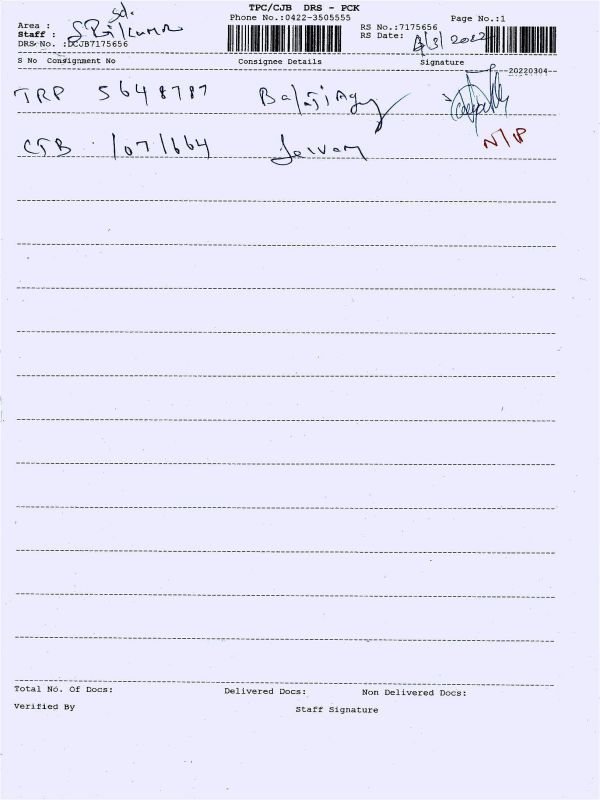 TPC/CJB DRS - PCK
Phone No.:0422-3505555
Page No.:1
Area : sd.
Staff :
DRS No. :DCJB7175656
RS No.:7175656
RS Date: 4/3/2022
S No Consignment No Consignee Details Signature
20220304
TRP 5648787 Balaji Agy
CJB 1071664
N/P
Total No. Of Docs: Delivered Docs: Non Delivered Docs:
Verified By Staff Signature